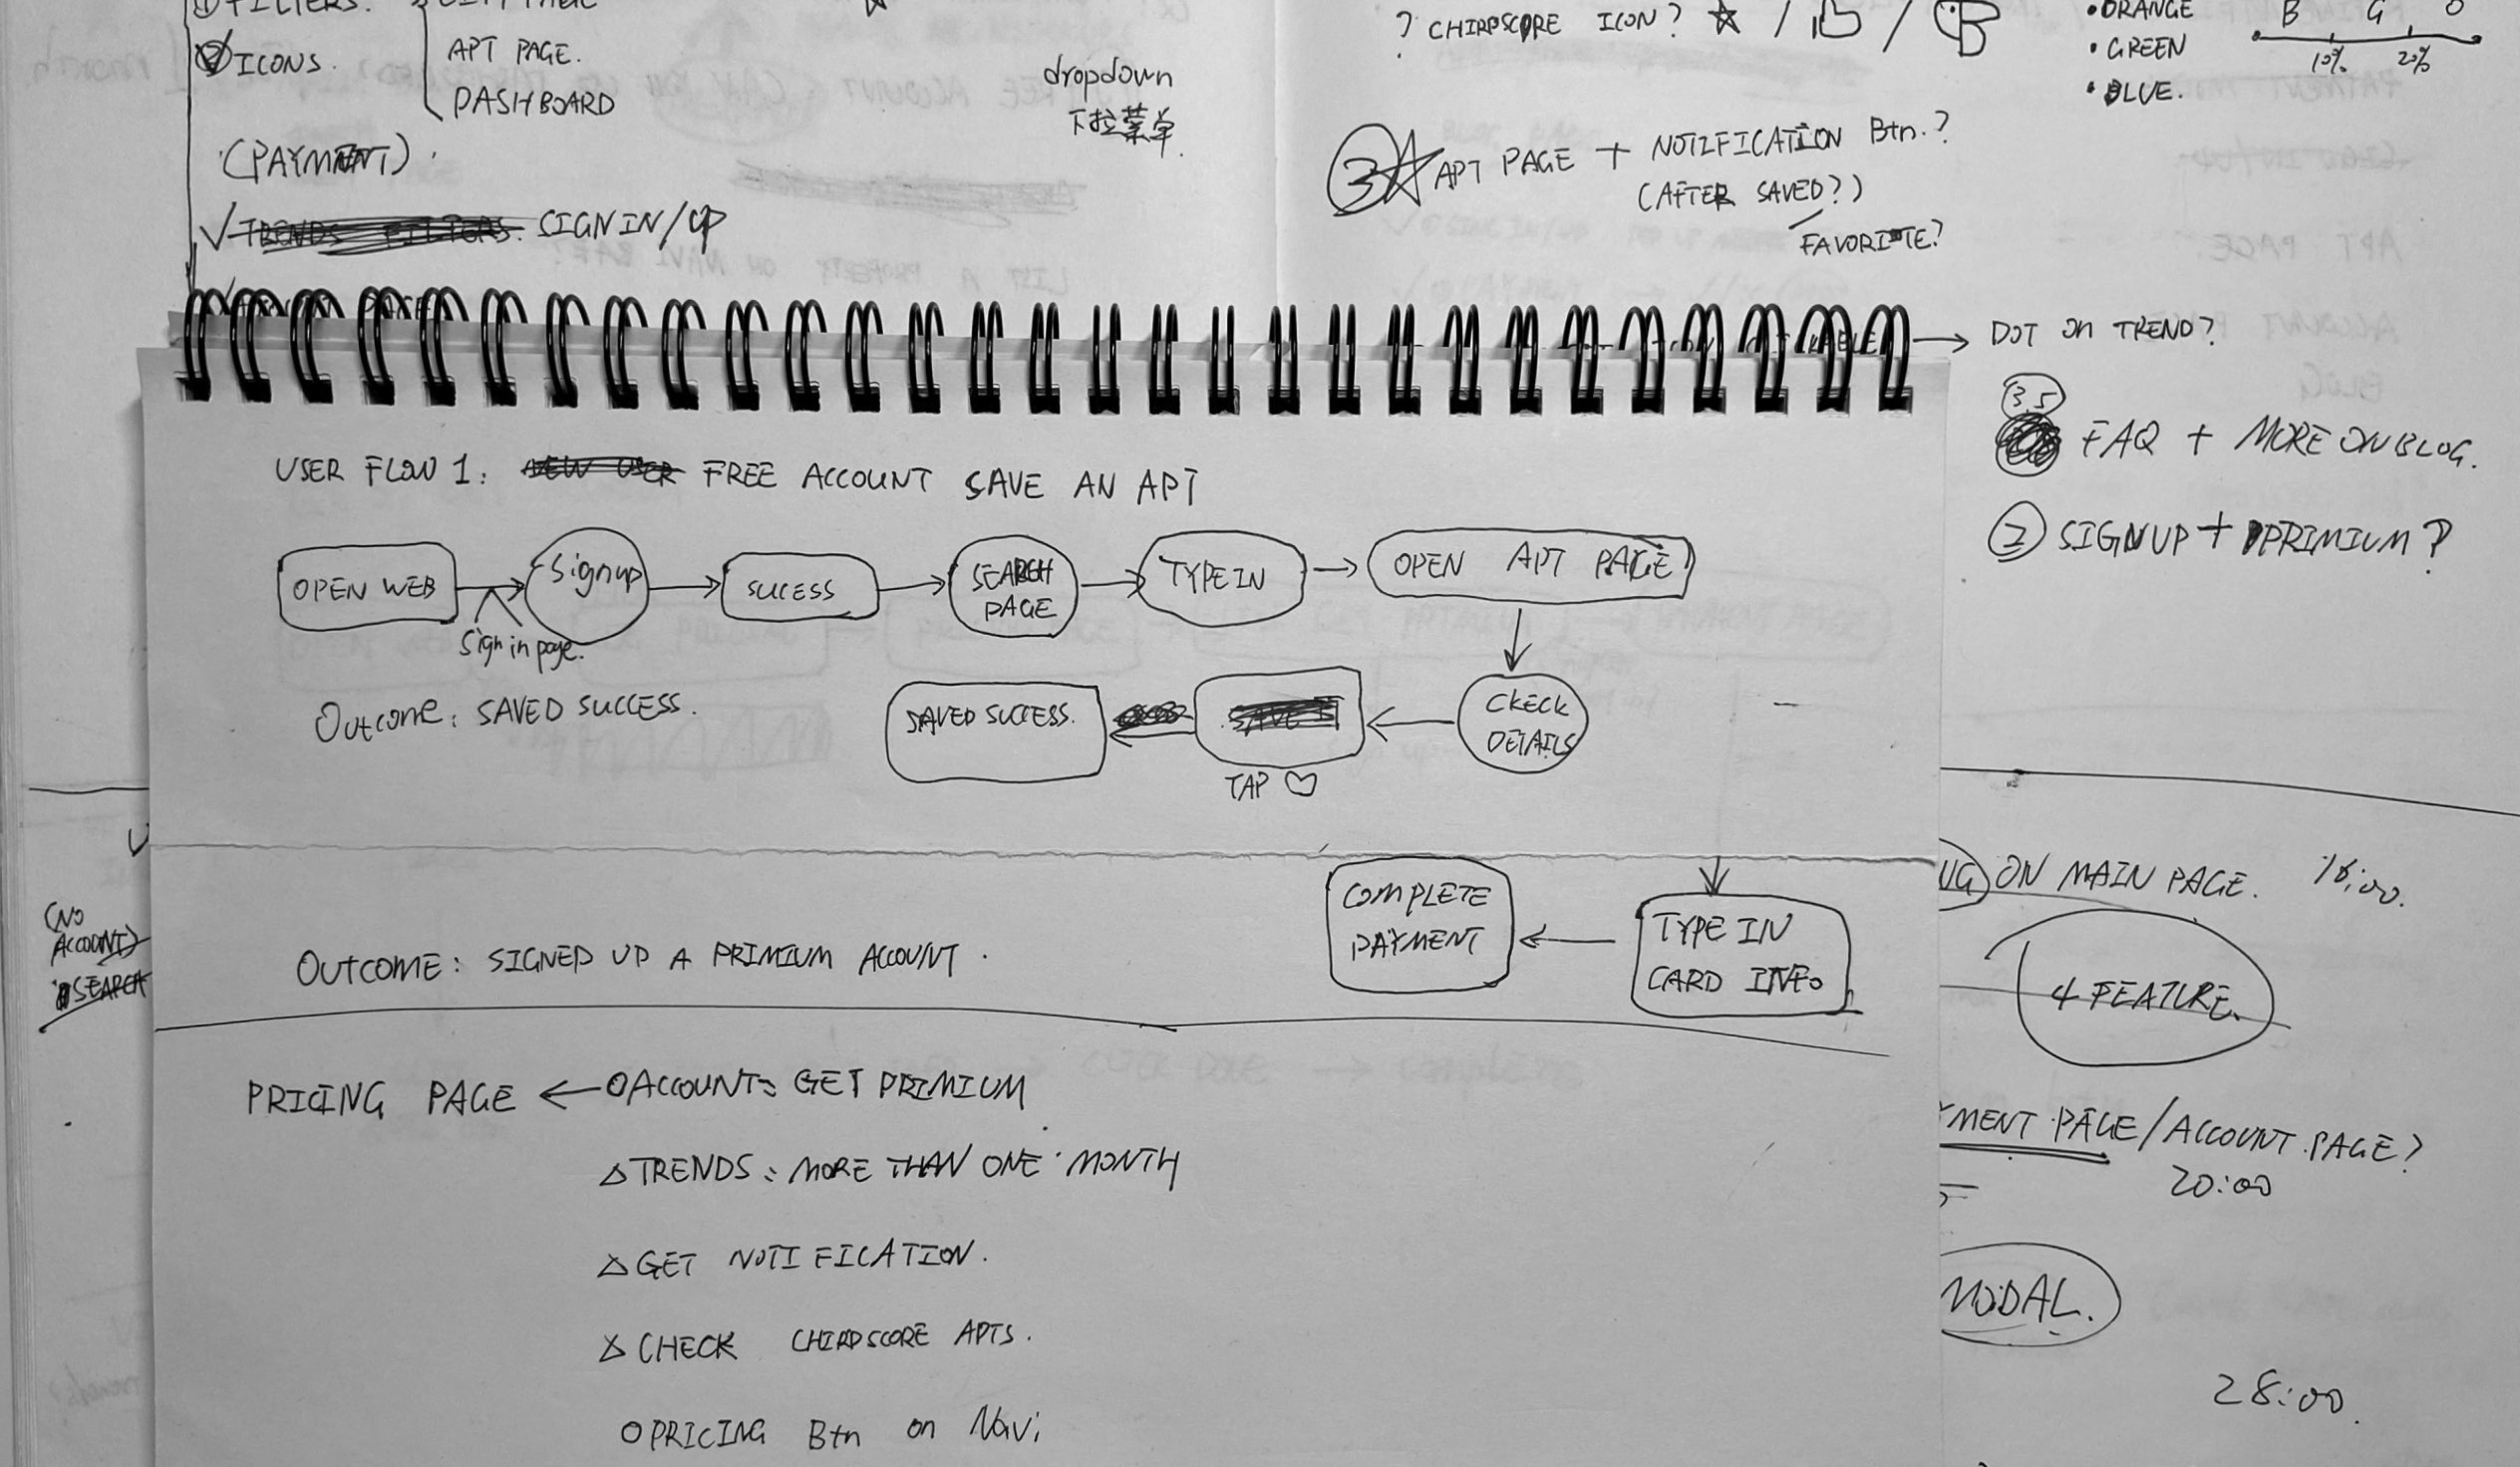 ICONS.
APT PAGE.
DASHBOARD
(PAYMENT).
SIGN IN/UP
dropdown
下拉菜单.
? CHIRPSCORE ICON? ☆ / /
• ORANGE
• GREEN
• BLUE.
B G O
10% 20%
3 ☆ APT PAGE + NOTIFICATION Btn.?
(AFTER SAVED?)
FAVORITE?
→ DOT ON TREND?
3.5
FAQ + MORE ON BLOG.
② SIGNUP + PRIMIUM?
USER FLOW 1: NEW USER FREE ACCOUNT SAVE AN APT
OPEN WEB → Signup → SUCESS → SEARCH PAGE → TYPE IN → OPEN APT PAGE
Sign in page.
Outcome: SAVED SUCCESS.
SAVED SUCCESS. ← SAVE IT ← CKECK DETAILS
TAP ♡
COMPLETE
PAYMENT
TYPE IN
CARD INFO
OUTCOME: SIGNED UP A PRIMIUM ACCOUNT.
(NO
ACCOUNT)
SEARCH
PRICING PAGE ← O ACCOUNT: GET PRIMIUM
△ TRENDS: MORE THAN ONE MONTH
△ GET NOTIFICATION.
△ CHECK CHIRPSCORE APTS.
O PRICING Btn on Navi
ON MAIN PAGE. 16:00.
4 FEATURE.
MENT PAGE/ACCOUNT PAGE?
20:00
MODAL.
28:00.